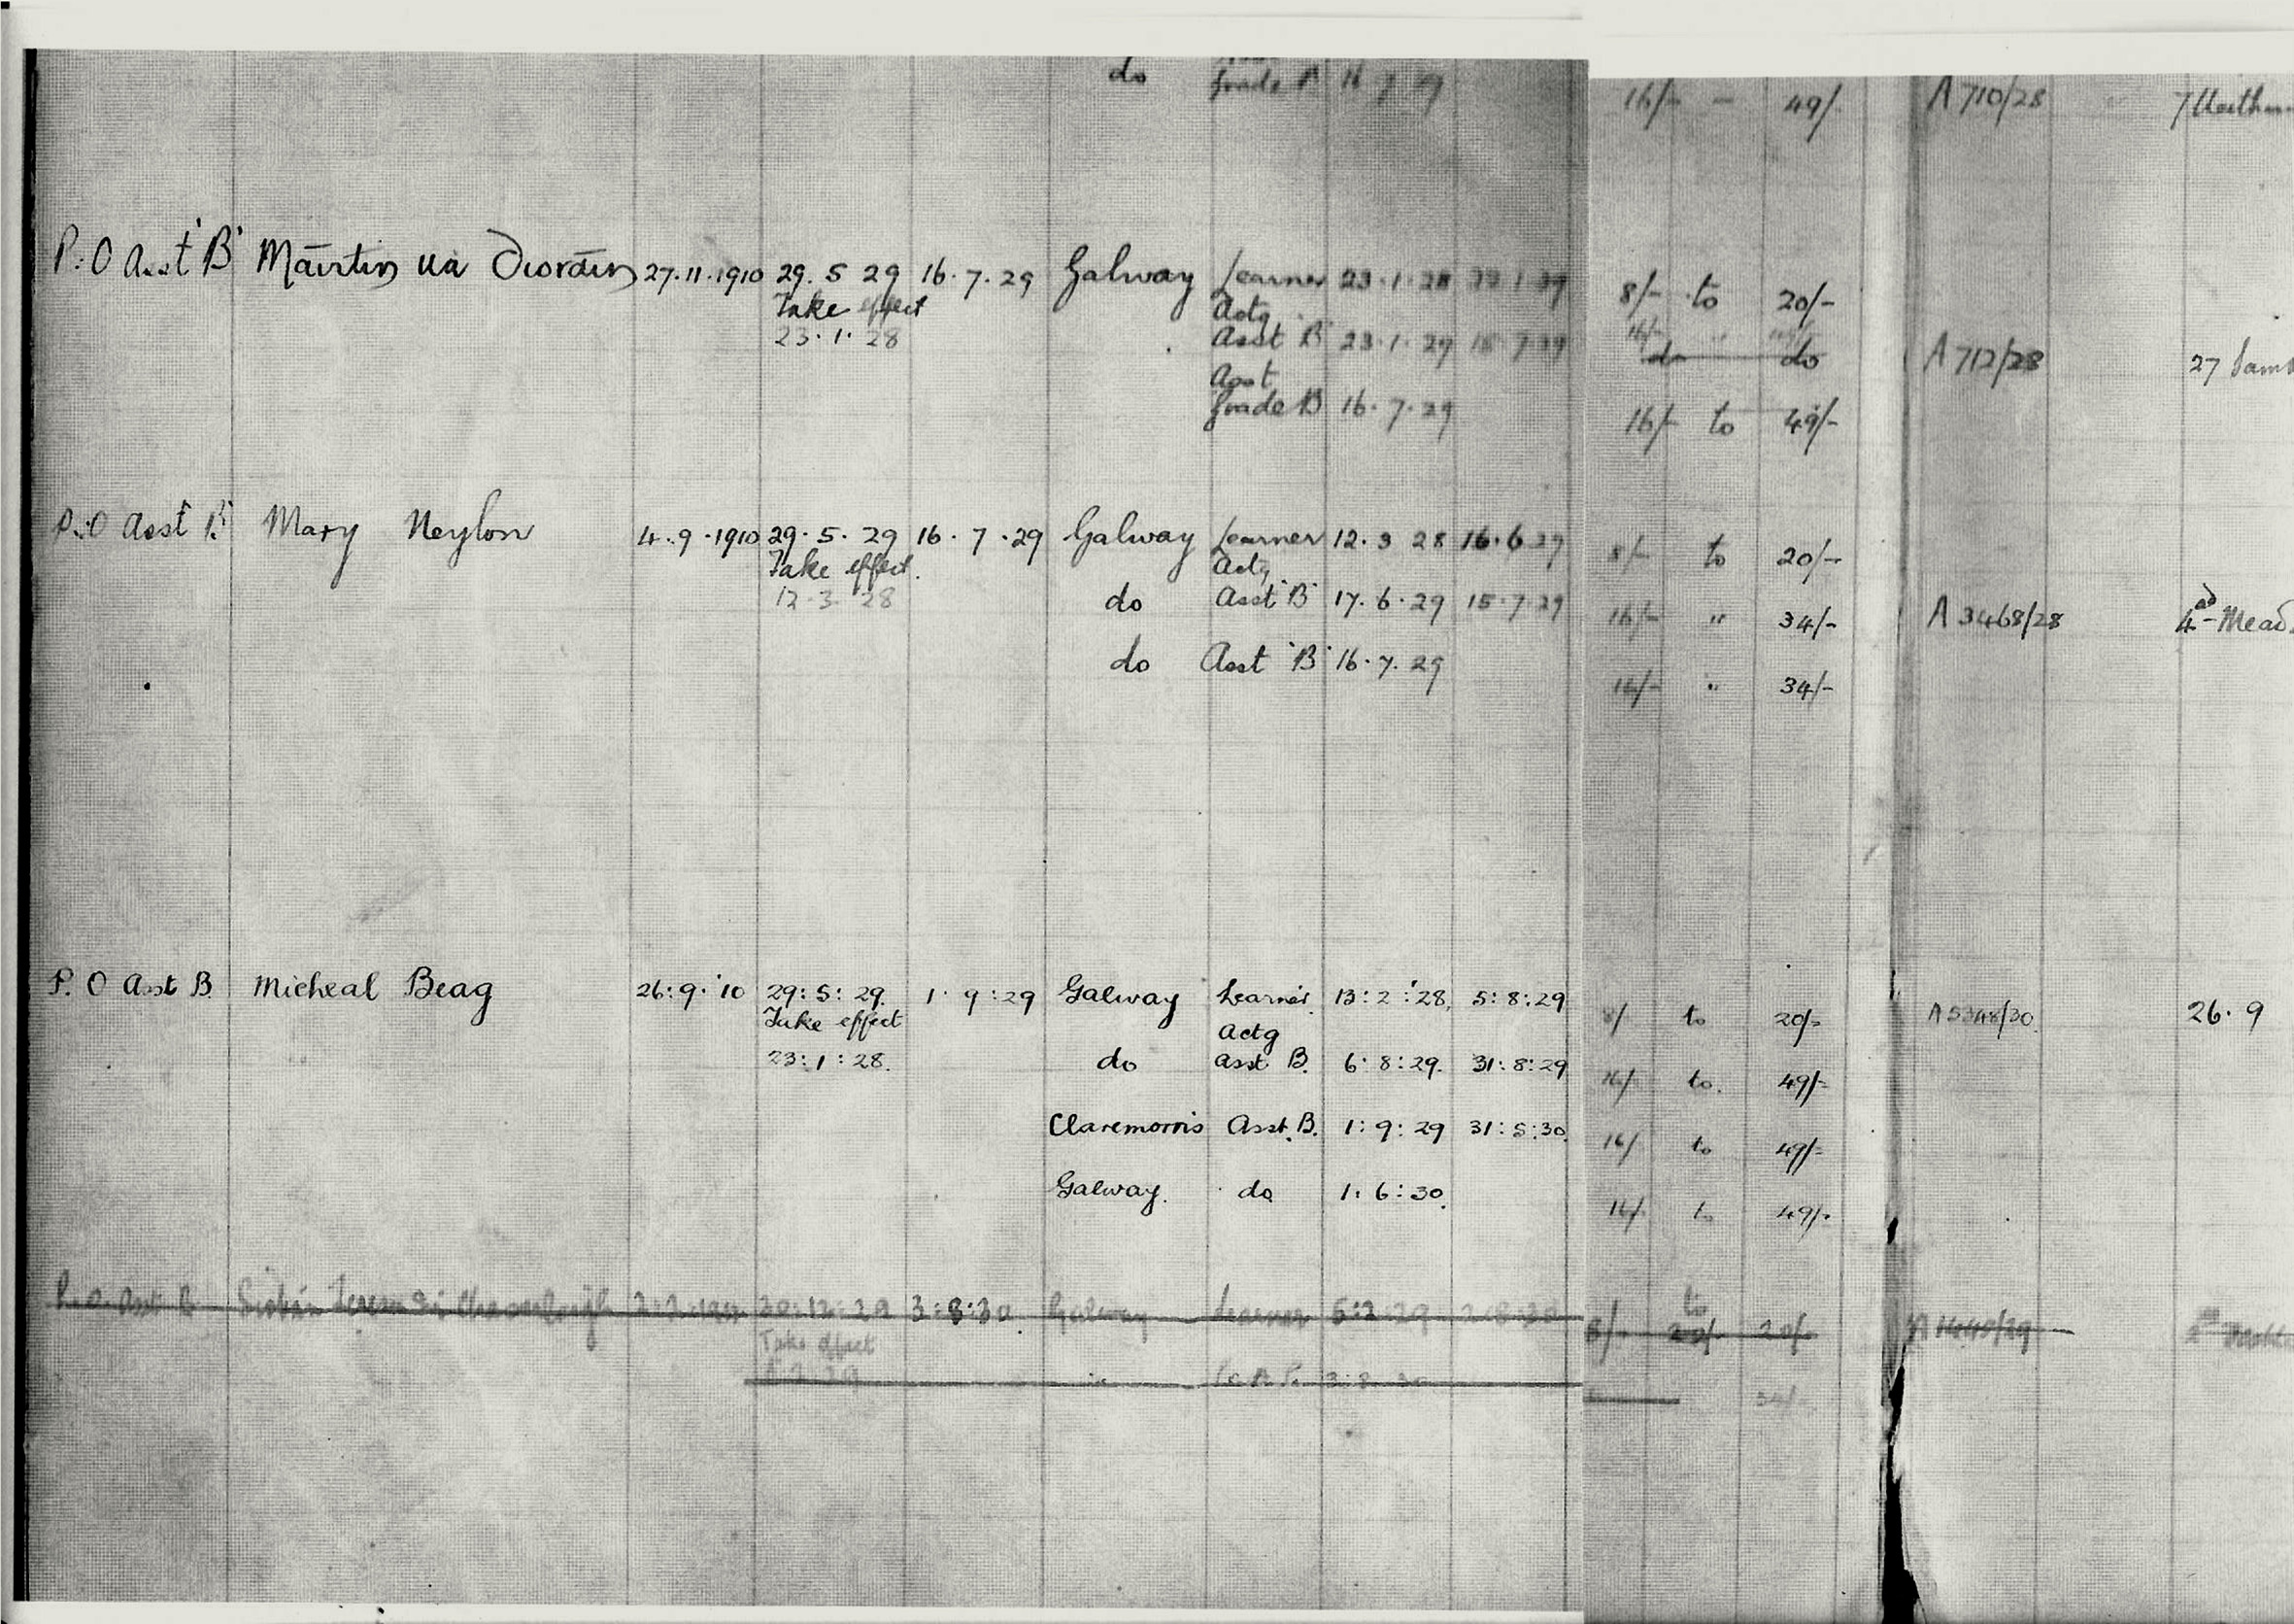 do Grade 16 7 29 16/- - 49/- A 710/28 7
P.O Asst 'B' Máirtín ua 27.11.1910 29. 5 29 16.7.29 Galway Learner 23.1.28 22 1 29 8/- to 20/-
Take effect Actg
23.1.28 Asst B 23.1.29 15 7 29 do do A 712/28 27
Asst
Grade B 16.7.29 16/- to 49/-
P.O Asst B Mary Neylon 4.9.1910 29.5.29 16.7.29 Galway Learner 12.3 28 16.6 29 8/- to 20/-
Take effect. Actg
12.3.28 do Asst 'B' 17.6.29 15.7.29 16/- " 34/- A 3468/28
do Asst 'B' 16.7.29 16/- " 34/-
P.O Asst B. Micheal Beag 26:9.'10 29:5:29. 1.9:29 Galway Learner 13:2:'28, 5:8:29 8/- to 20/- 26.9
Take effect Actg
23:1:28. do asst B. 6.8:29. 31:8:29 16/- to. 49/-
Claremorris Asst.B. 1:9:29 31:5:30. 16/- to 49/-
Galway. do 1.6:30. 16/- to 49/-
P.O. Asst B 30:12:29 3:8:30 Galway Learner 5:2:29 2:8:30 8/- to 20/- 20/-
Take effect
3:8:30 34/-